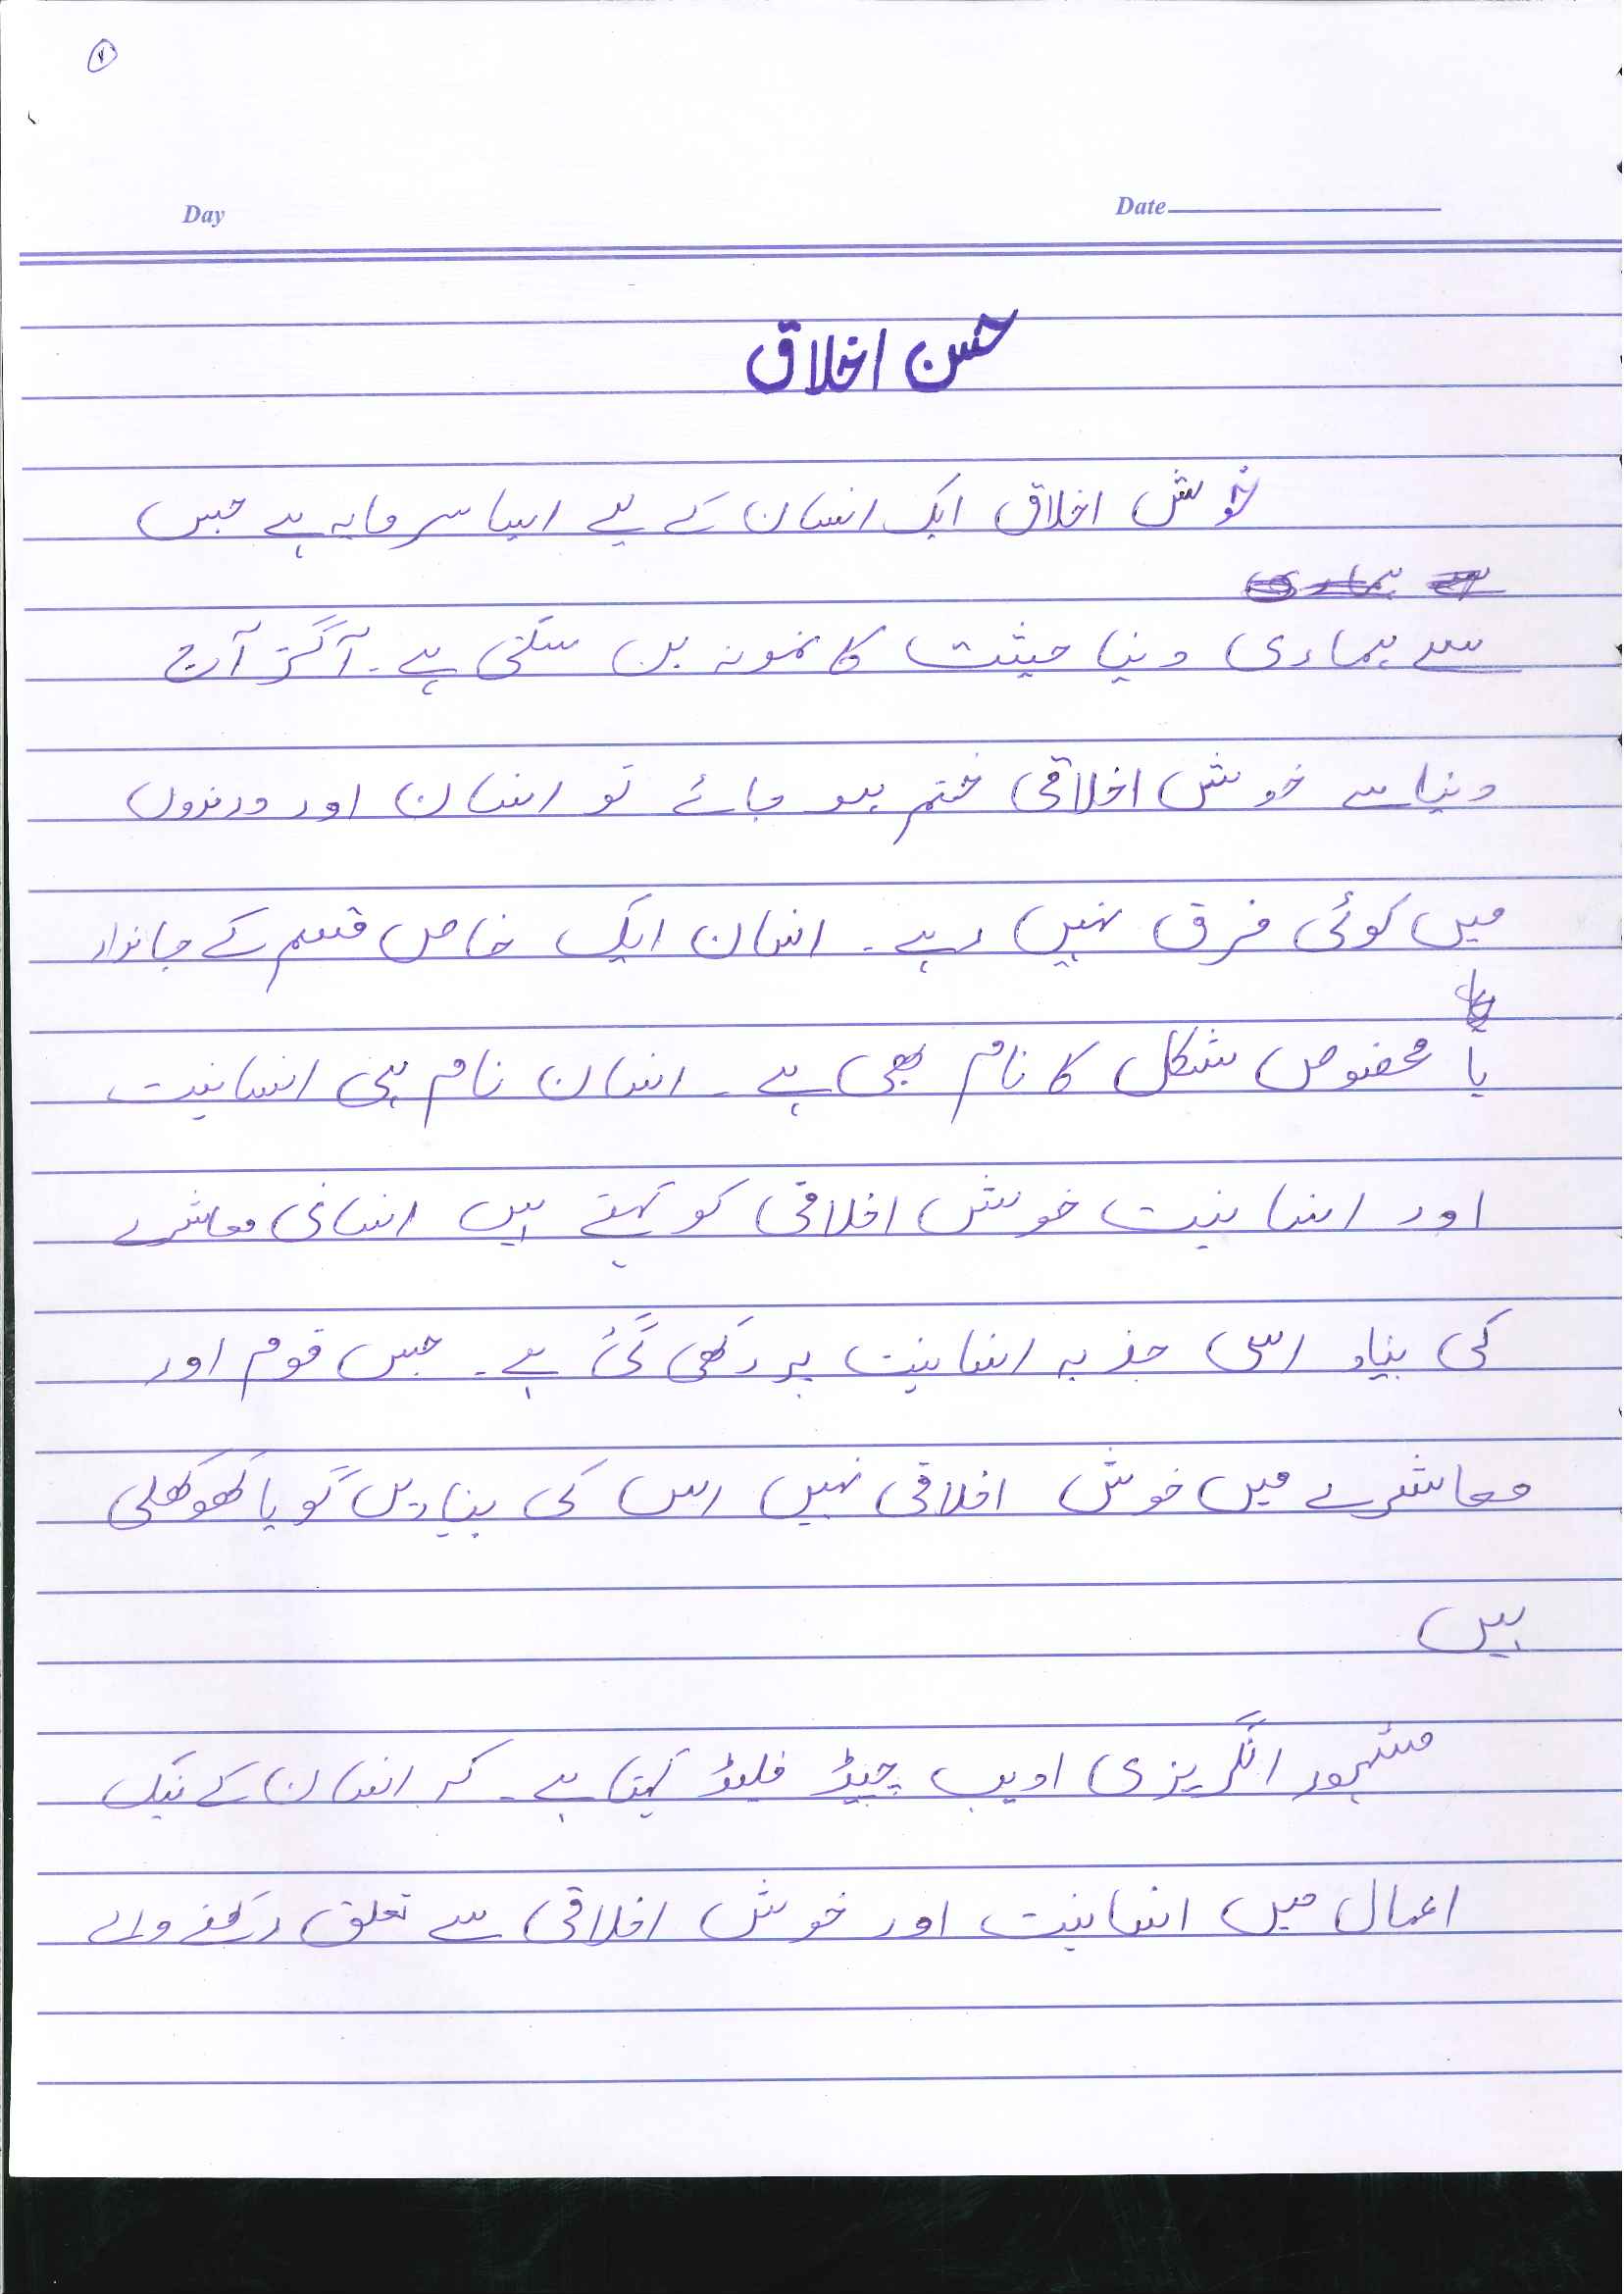 ۱
Day
Date
حسن اخلاق
خوش اخلاق ایک انسان کے لیے ایسا سرمایہ ہے جس
سے ہماری
سے ہماری دنیا جیثت کا نمونہ بن سکتی ہے۔ آگر آج
دنیا سے خوش اخلاقی ختم ہو جائے تو انسان اور درندوں
میں کوئی فرق نہیں رہے۔ انسان ایک خاص قسم کے جاندار
یا مخصوص شکل کا نام بھی ہے۔ انسان نام ہی انسانیت
اور انسانیت خوش اخلاقی کو کہتے ہیں انسانی معاشرے
کی بنیاد اسی جذبہ انسانیت پر رکھی گئی ہے۔ جس قوم اور
معاشرے میں خوش اخلاقی نہیں اس کی بنیادیں گویا کھوکھلی
ہیں
مشہور انگریزی ادیب چیڈ فلیڈ کہتا ہے۔ کہ انسان کے نیک
اعمال میں انسانیت اور خوش اخلاقی سے تعلق رکھنے والے